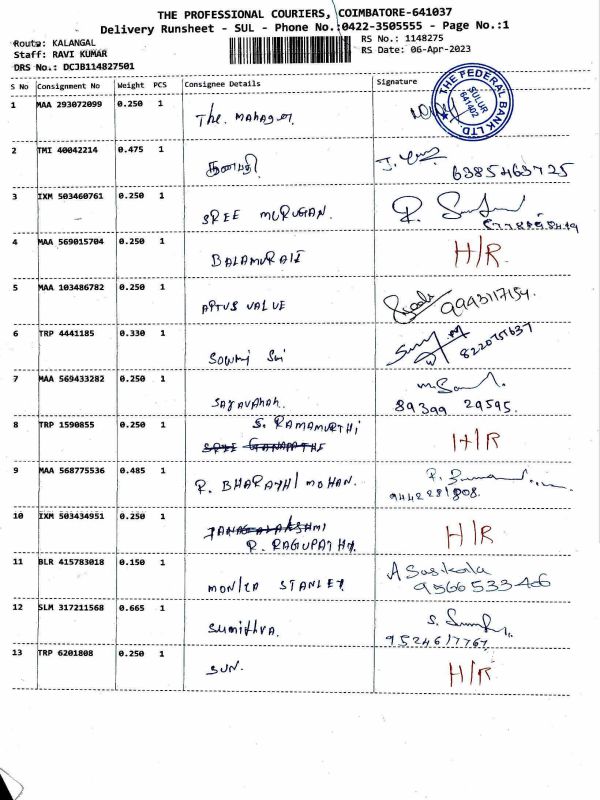 THE PROFESSIONAL COURIERS, COIMBATORE-641037
Delivery Runsheet - SUL - Phone No.:0422-3505555 - Page No.:1
Route: KALANGAL
RS No.: 1148275
Staff: RAVI KUMAR
RS Date: 06-Apr-2023
DRS No.: DCJB114827501
S No Consignment No Weight PCS Consignee Details Signature
THE FEDERAL BANK LTD. SULUR 641402
1 MAA 293072099 0.250 1 The. Manager.
2 TMI 40042214 0.475 1 கணபதி 6385463725
3 IXM 503460761 0.250 1 SREE MURUGAN.
4 MAA 569015704 0.250 1 BALAMURALI H/R.
5 MAA 103486782 0.250 1 APTUS VALUE 9943117154.
6 TRP 4441185 0.330 1 Sowmi Sri 8220757637
7 MAA 569433282 0.250 1 Saravanan. 89399 29595.
8 TRP 1590855 0.250 1 S. RAMAMURTHI H/R
9 MAA 568775536 0.485 1 R. BHARATHI MOHAN. 9442281808.
10 IXM 503434951 0.250 1 R. RAGUPATHY. H/R
11 BLR 415783018 0.150 1 MONICA STANLEY. A Saskala 9566533406
12 SLM 317211568 0.665 1 Sumithra. 9524617767
13 TRP 6201808 0.250 1 SUN. H/R